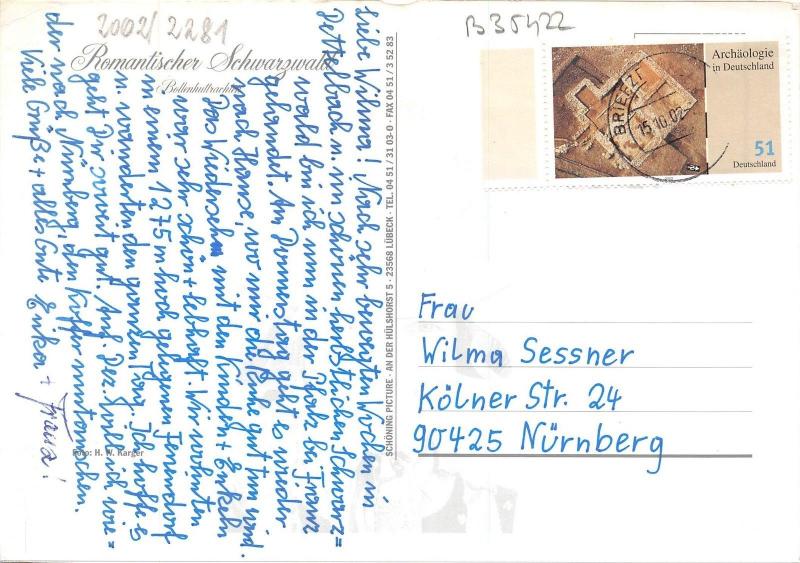 2002/2281
Romantischer Schwarzwald
Bollenhuttrachten
B 35422
Archäologie
in Deutschland
51
Deutschland
BRIEFZ
15.10.02
Liebe Wilma! Nach sehr bewegten Wochen in
Dettelbach u. im schönen herbstlichen Schwarz=
wald bin ich nun in der Pfalz bei Franz
gelandet. Am Donnerstag geht es wieder
nach Hause, wo mir die Ruhe gut tun wird.
Das Wiedersehn mit den Kindern + Enkeln
war sehr schön + lebhaft. Wir wohnten
in einem 1275 m hoch gelegenen Feriendorf
u. wanderten den ganzen Tag. Ich hoffe es
geht Dir soweit gut. Anf. Dez. will ich wie=
der nach Nürnberg, den Koffer umtauschen.
Viele Grüße + alles Gute Erika + Franz!
Foto: H. W. Karger
SCHÖNING PICTURE · AN DER HÜLSHORST 5 · 23568 LÜBECK · TEL 04 51 / 31 03-0 · FAX 04 51 / 3 52 83
Frau
Wilma Sessner
Kölner Str. 24
90425 Nürnberg